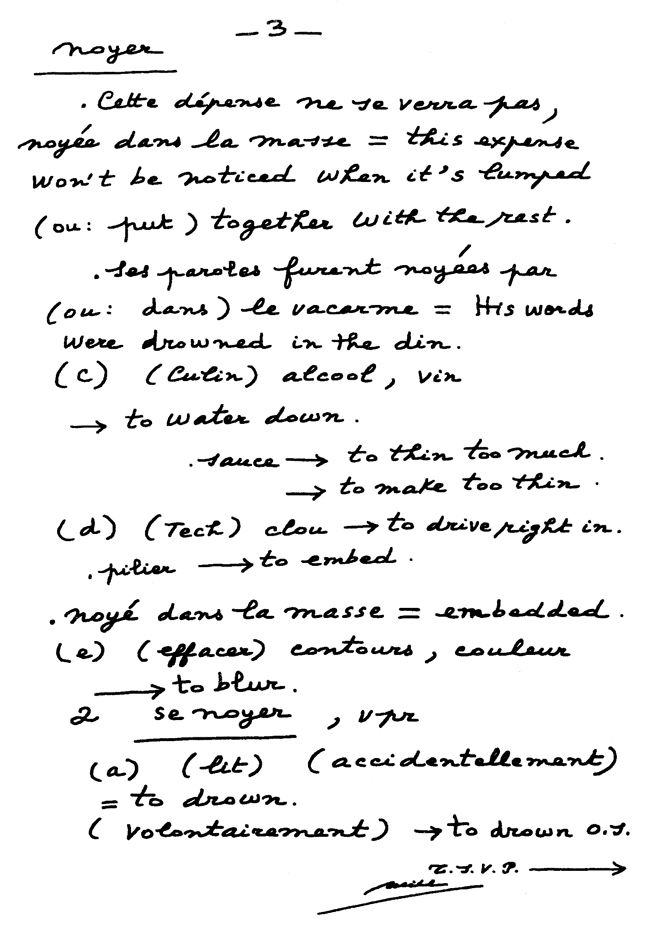 — 3 —
noyer
. Cette dépense ne se verra pas,
noyée dans la masse = this expense
won't be noticed when it's lumped
(ou: put) together with the rest.
. Ses paroles furent noyées par
(ou: dans) le vacarme = His words
were drowned in the din.
(c) (Culin) alcool, vin
→ to water down.
. sauce → to thin too much.
→ to make too thin.
(d) (Tech) clou → to drive right in.
. pilier → to embed.
. noyé dans la masse = embedded.
(e) (effacer) contours, couleur
→ to blur.
2 se noyer, v pr
(a) (lit) (accidentellement)
= to drown.
(volontairement) → to drown o.s.
T.S.V.P. →